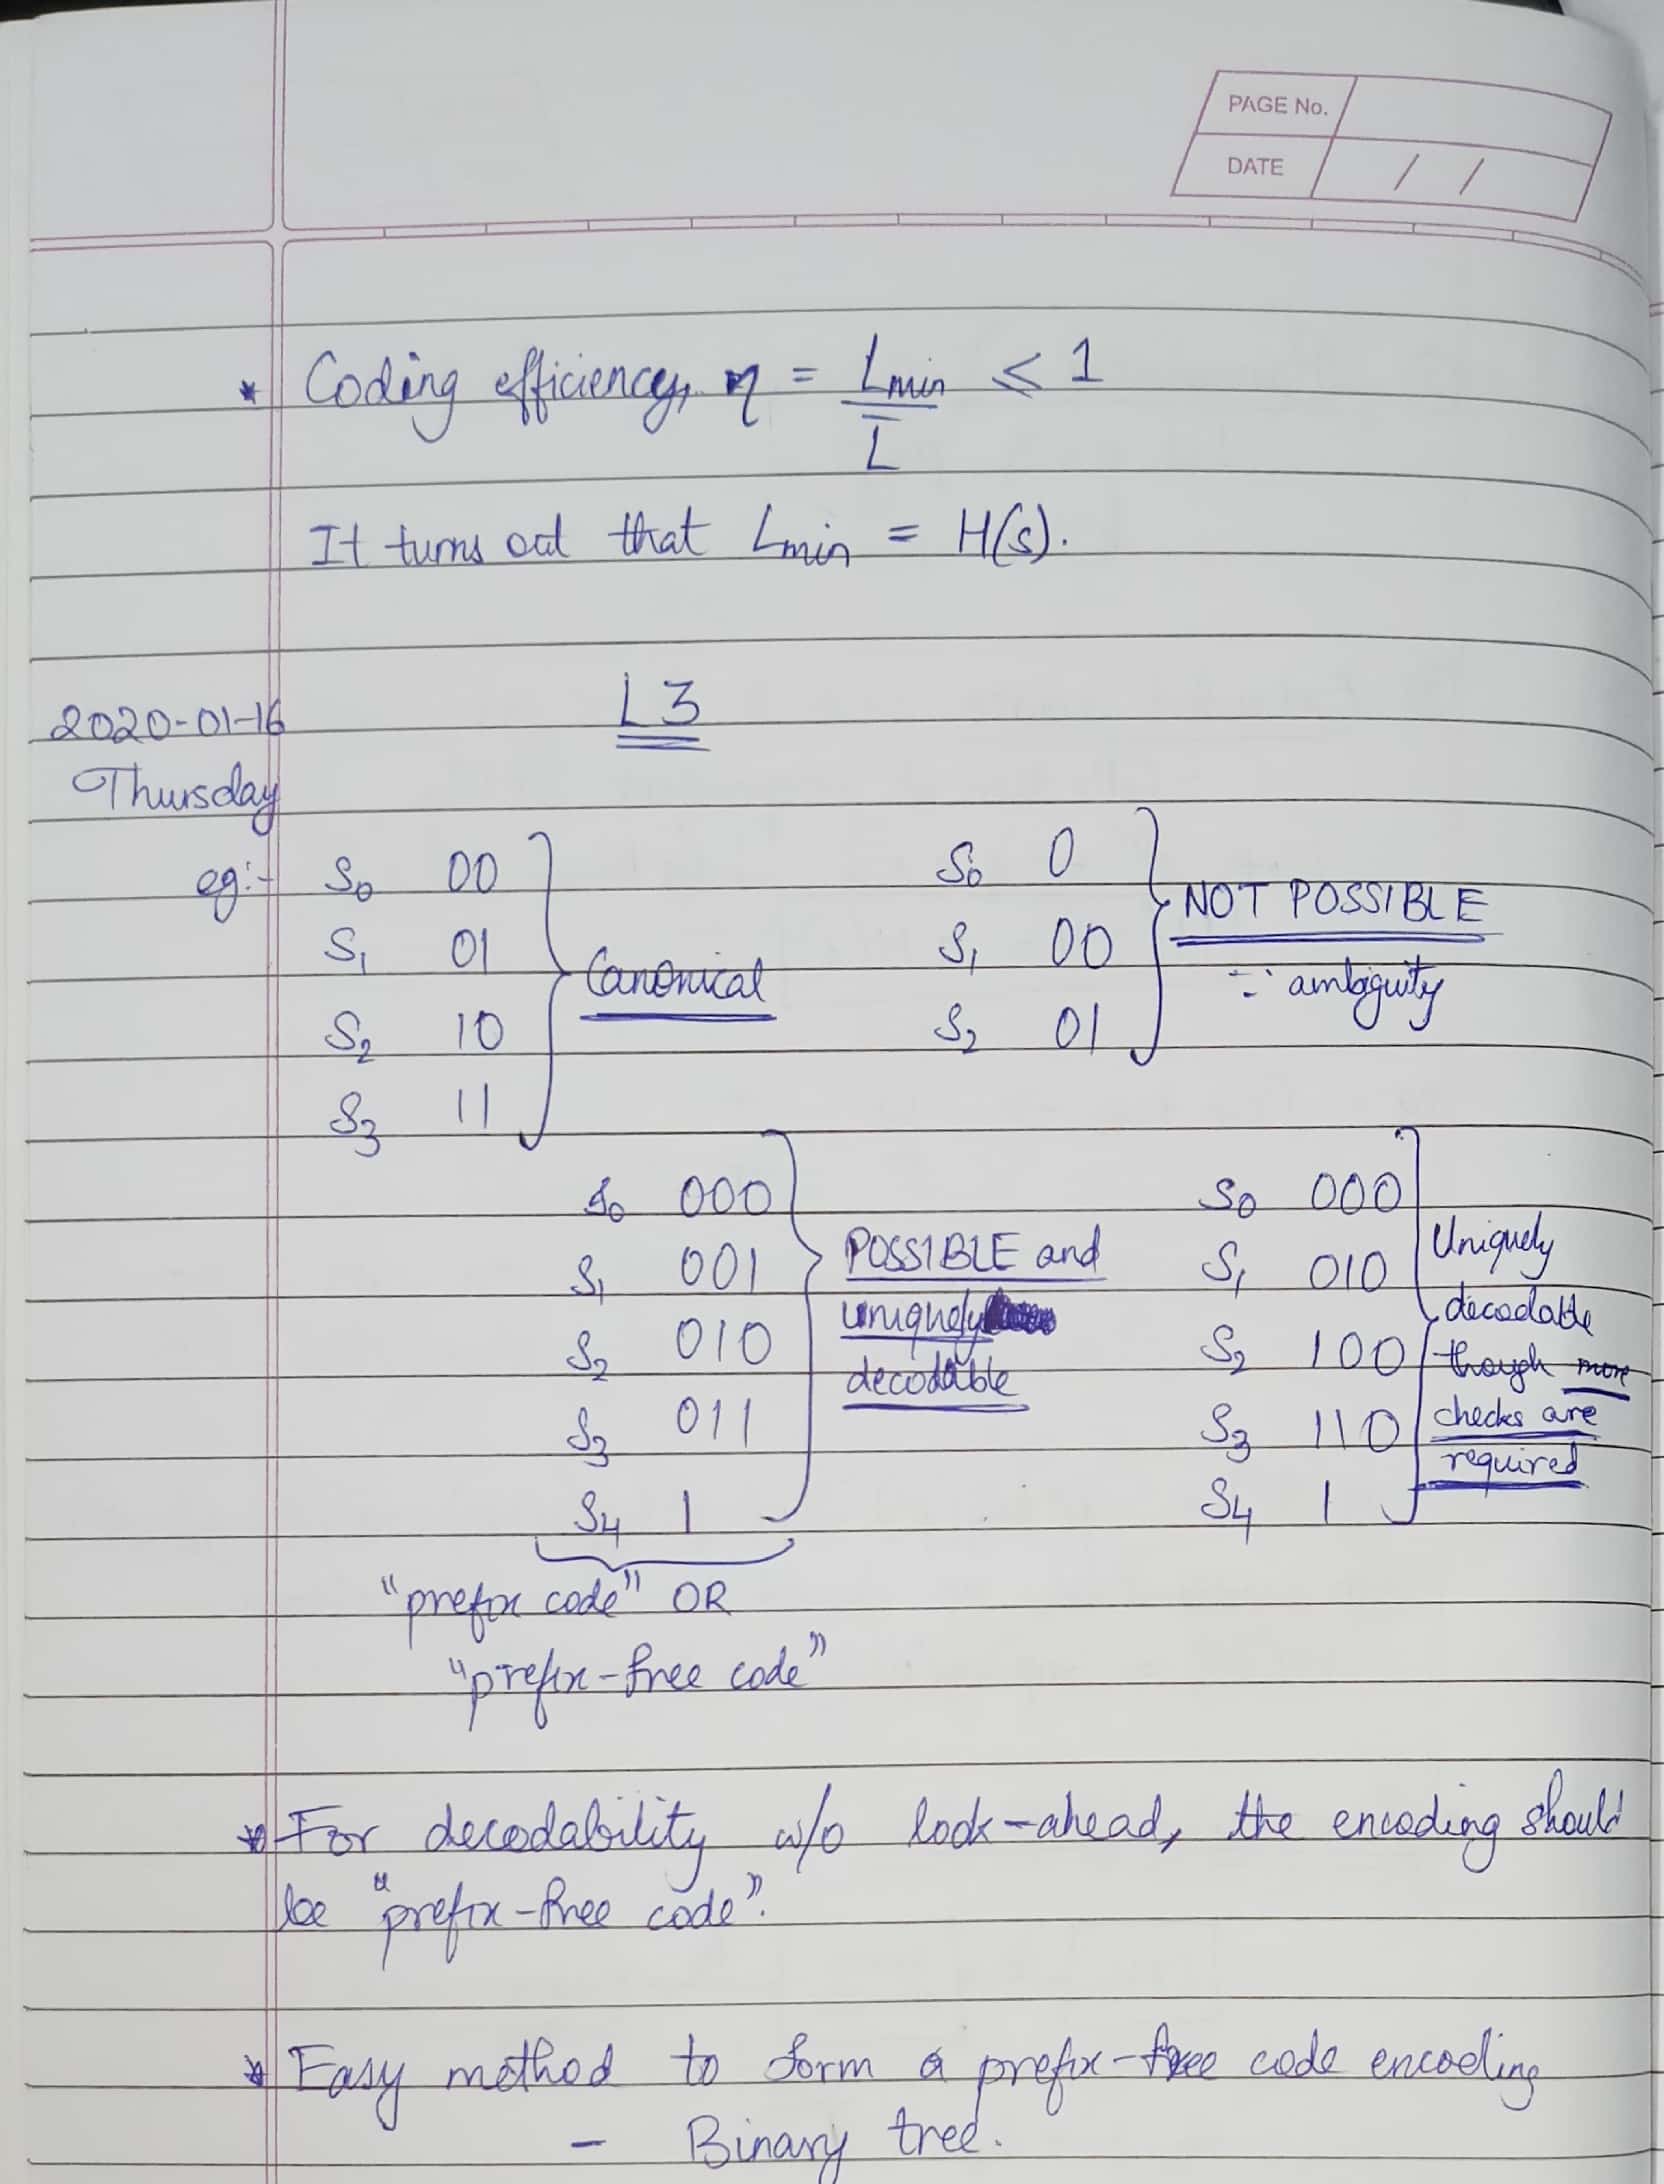 PAGE No.
DATE / /
* Coding efficiency, η = Lmin / L̅ ≤ 1
It turns out that Lmin = H(s).
L3
2020-01-16
Thursday
eg:- S0 00
S1 01
S2 10
S3 11
Canonical
S0 0
S1 00
S2 01
NOT POSSIBLE
∵ ambiguity
S0 000
S1 001
S2 010
S3 011
S4 1
POSSIBLE and
uniquely
decodable
"prefix code" OR
"prefix-free code"
S0 000
S1 010
S2 100
S3 110
S4 1
Uniquely
decodable
though more
checks are
required
* For decodability w/o look-ahead, the encoding should
be "prefix-free code".
* Easy method to form a prefix-free code encoding
- Binary tree.